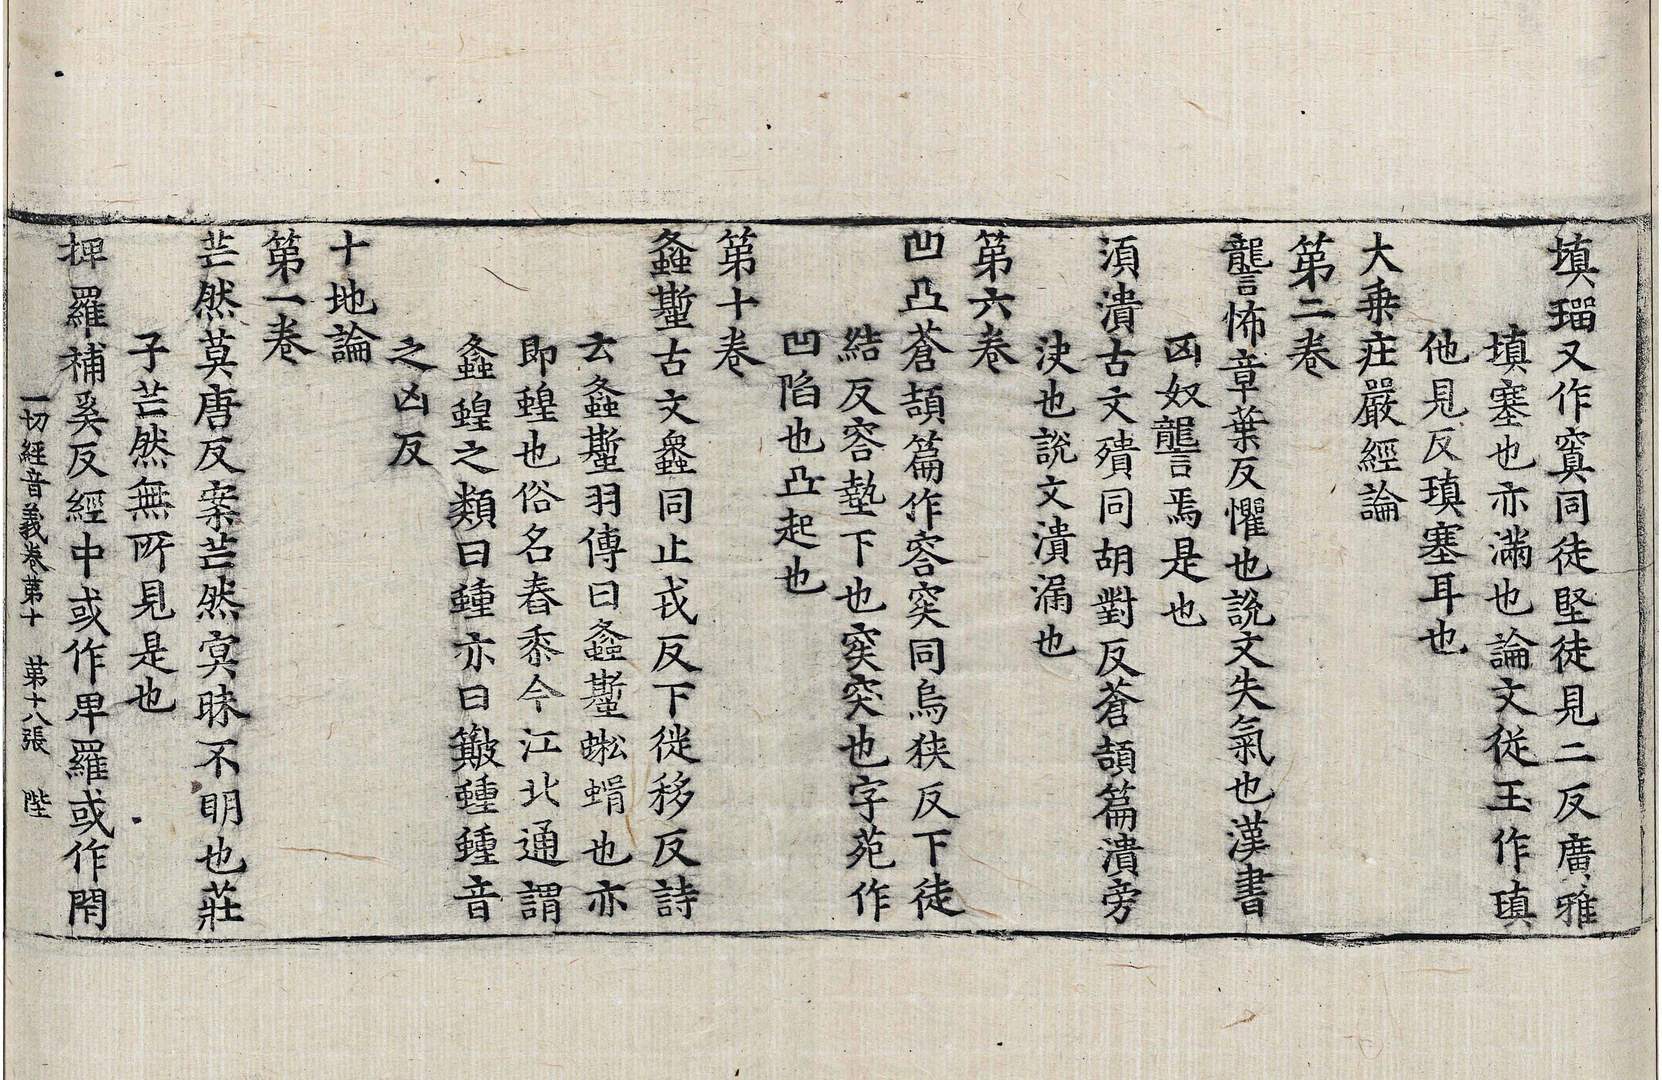 填瑠又作窴同徒堅徒見二反廣雅
填塞也亦滿也論文從王作瑱
他見反瑱塞耳也
大乗庄嚴經論
第二卷
讋怖章葉反懼也說文失氣也漢書
凶奴讋焉是也
湏潰古文殨同胡對反蒼頡篇潰旁
決也說文潰漏也
第六卷
凹凸蒼頡篇作容突同烏狹反下徒
結反容墊下也突突也字苑作
凹陷也凸起也
第十卷
螽蟴古文螽同止戎反下徙移反詩
云螽蟴羽傳曰螽蟴蜙蝑也亦
即蝗也俗名舂黍今江北通謂
螽蝗之類曰蝩亦曰簸蝩蝩音
之凶反
十地論
第一卷
芒然莫唐反案芒然㝠昧不明也莊
子芒然無所見是也
捭羅補奚反經中或作甲羅或作閇
一切經音義卷第十 第十八張 陛